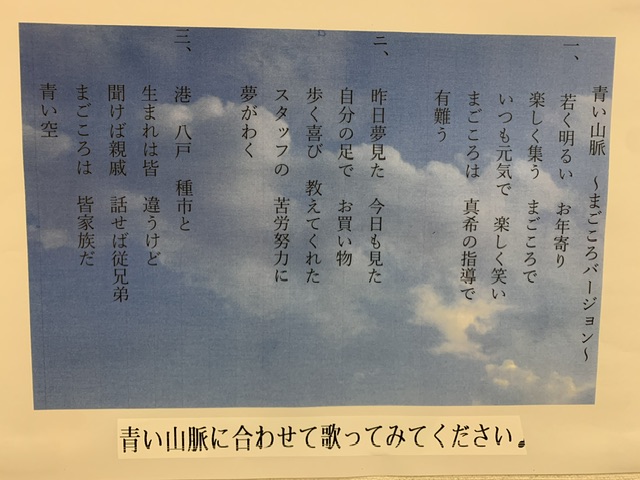 青い山脈　～まごころバージョン～
一、
若く明るい　お年寄り
楽しく集う　まごころで
いつも元気で　楽しく笑い
まごころは　真希の指導で
有難う
二、
昨日夢見た　今日も見た
自分の足で　お買い物
歩く喜び　教えてくれた
スタッフの　苦労努力に
夢がわく
三、
港　八戸　種市と
生まれは皆　違うけど
聞けば親戚　話せば従兄弟
まごころは　皆家族だ
青い空
青い山脈に合わせて歌ってみてください。